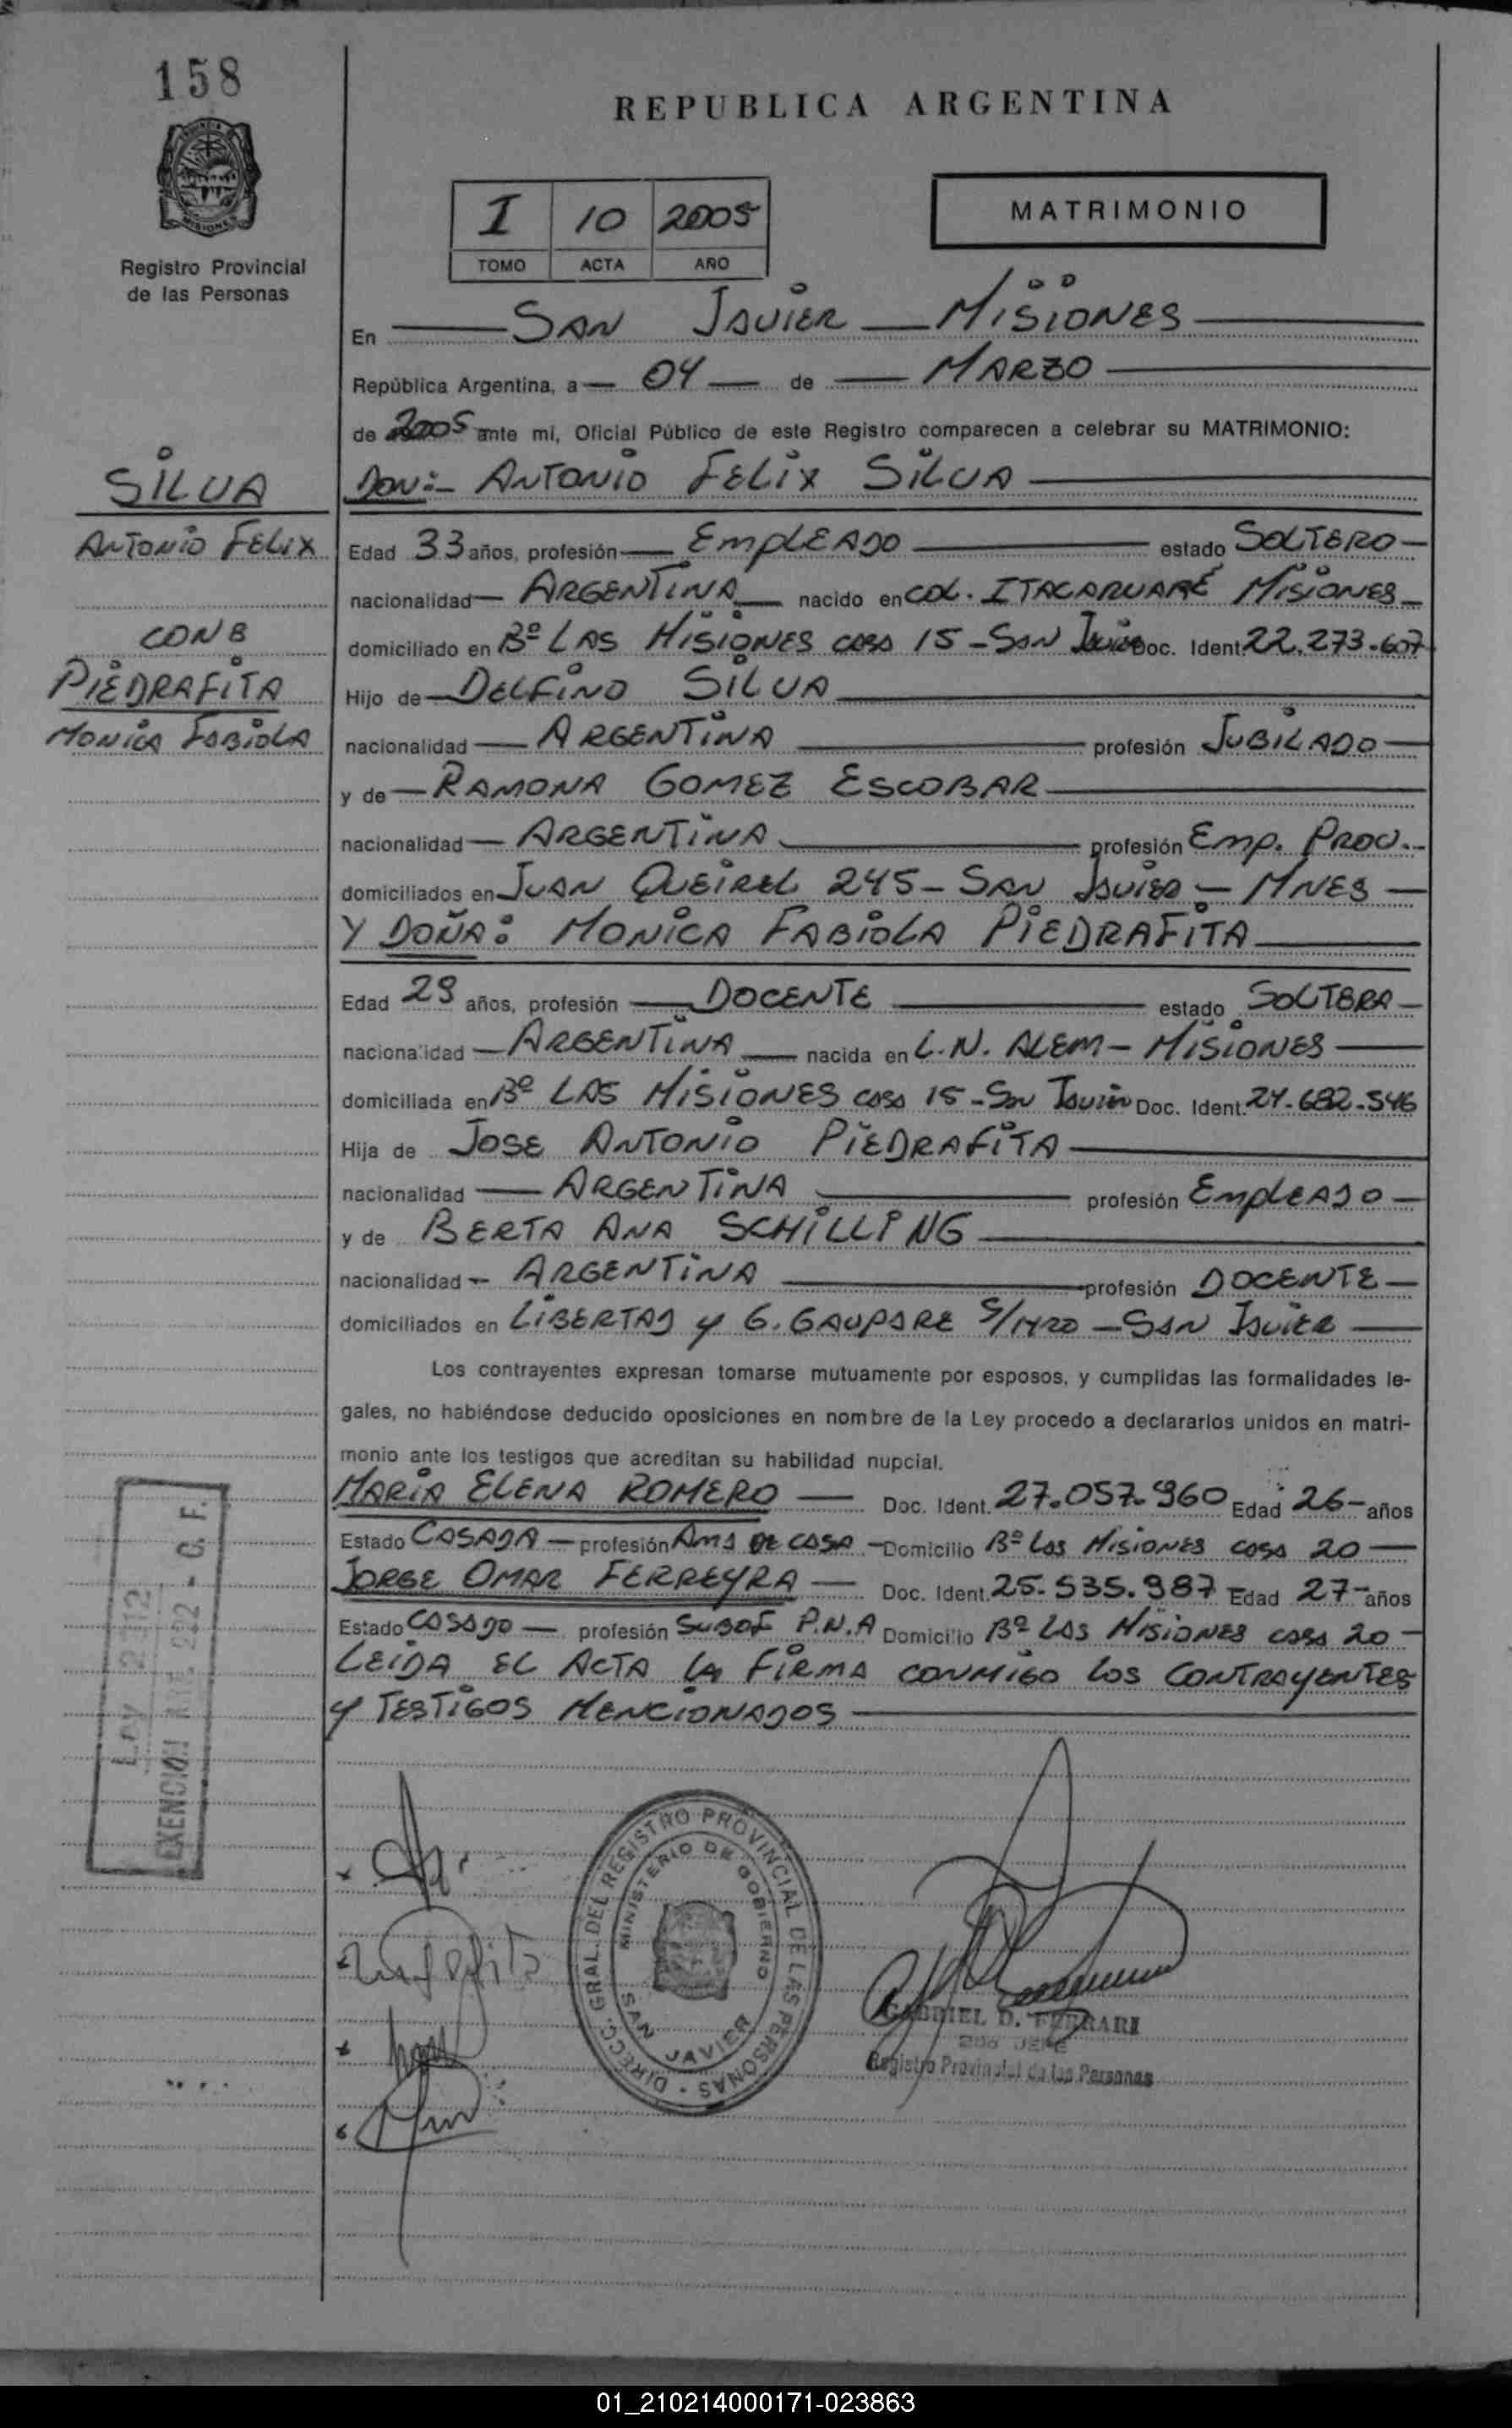 158
REPUBLICA ARGENTINA
I 10 2005
TOMO ACTA AÑO
MATRIMONIO
Registro Provincial
de las Personas
En SAN JAVIER MISIONES
República Argentina, a 04 de MARZO
de 2005 ante mí, Oficial Público de este Registro comparecen a celebrar su MATRIMONIO:
SILVA
ANTONIO FELIX
CON
PIEDRAFITA
MONICA FABIOLA
DON:- ANTONIO FELIX SILVA
Edad 33 años, profesión EMPLEADO estado SOLTERO
nacionalidad ARGENTINA nacido en COL. ITACARUARÉ MISIONES
domiciliado en Bº LAS MISIONES CASA 15 - SAN JAVIER Doc. Ident. 22.273.607
Hijo de DELFINO SILVA
nacionalidad ARGENTINA profesión JUBILADO
y de RAMONA GOMEZ ESCOBAR
nacionalidad ARGENTINA profesión EMP. PROV.
domiciliados en JUAN QUEIREL 245 - SAN JAVIER - MNES
Y DOÑA: MONICA FABIOLA PIEDRAFITA
Edad 29 años, profesión DOCENTE estado SOLTERA
nacionalidad ARGENTINA nacida en L.N. ALEM - MISIONES
domiciliada en Bº LAS MISIONES CASA 15 - SAN JAVIER Doc. Ident. 24.682.546
Hija de JOSE ANTONIO PIEDRAFITA
nacionalidad ARGENTINA profesión EMPLEADO
y de BERTA ANA SCHILLING
nacionalidad ARGENTINA profesión DOCENTE
domiciliados en LIBERTAD y G. S/NRO - SAN JAVIER
Los contrayentes expresan tomarse mutuamente por esposos, y cumplidas las formalidades le-
gales, no habiéndose deducido oposiciones en nombre de la Ley procedo a declararlos unidos en matri-
monio ante los testigos que acreditan su habilidad nupcial.
MARIA ELENA ROMERO Doc. Ident. 27.057.960 Edad 26 - años
Estado CASADA - profesión AMA DE CASA - Domicilio Bº LAS MISIONES CASA 20
JORGE OMAR FERREYRA Doc. Ident. 25.535.987 Edad 27 - años
Estado CASADO profesión SUBOF P.N.A Domicilio Bº LAS MISIONES CASA 20
LEIDA EL ACTA LA FIRMA CONMIGO LOS CONTRAYENTES
Y TESTIGOS MENCIONADOS
DIRECC. GRAL. DEL REGISTRO PROVINCIAL DE LAS PERSONAS
MINISTERIO DE GOBIERNO
SAN JAVIER
GABRIEL D. FERRARI
2DO JEFE
Registro Provincial de las Personas
01_210214000171-023863